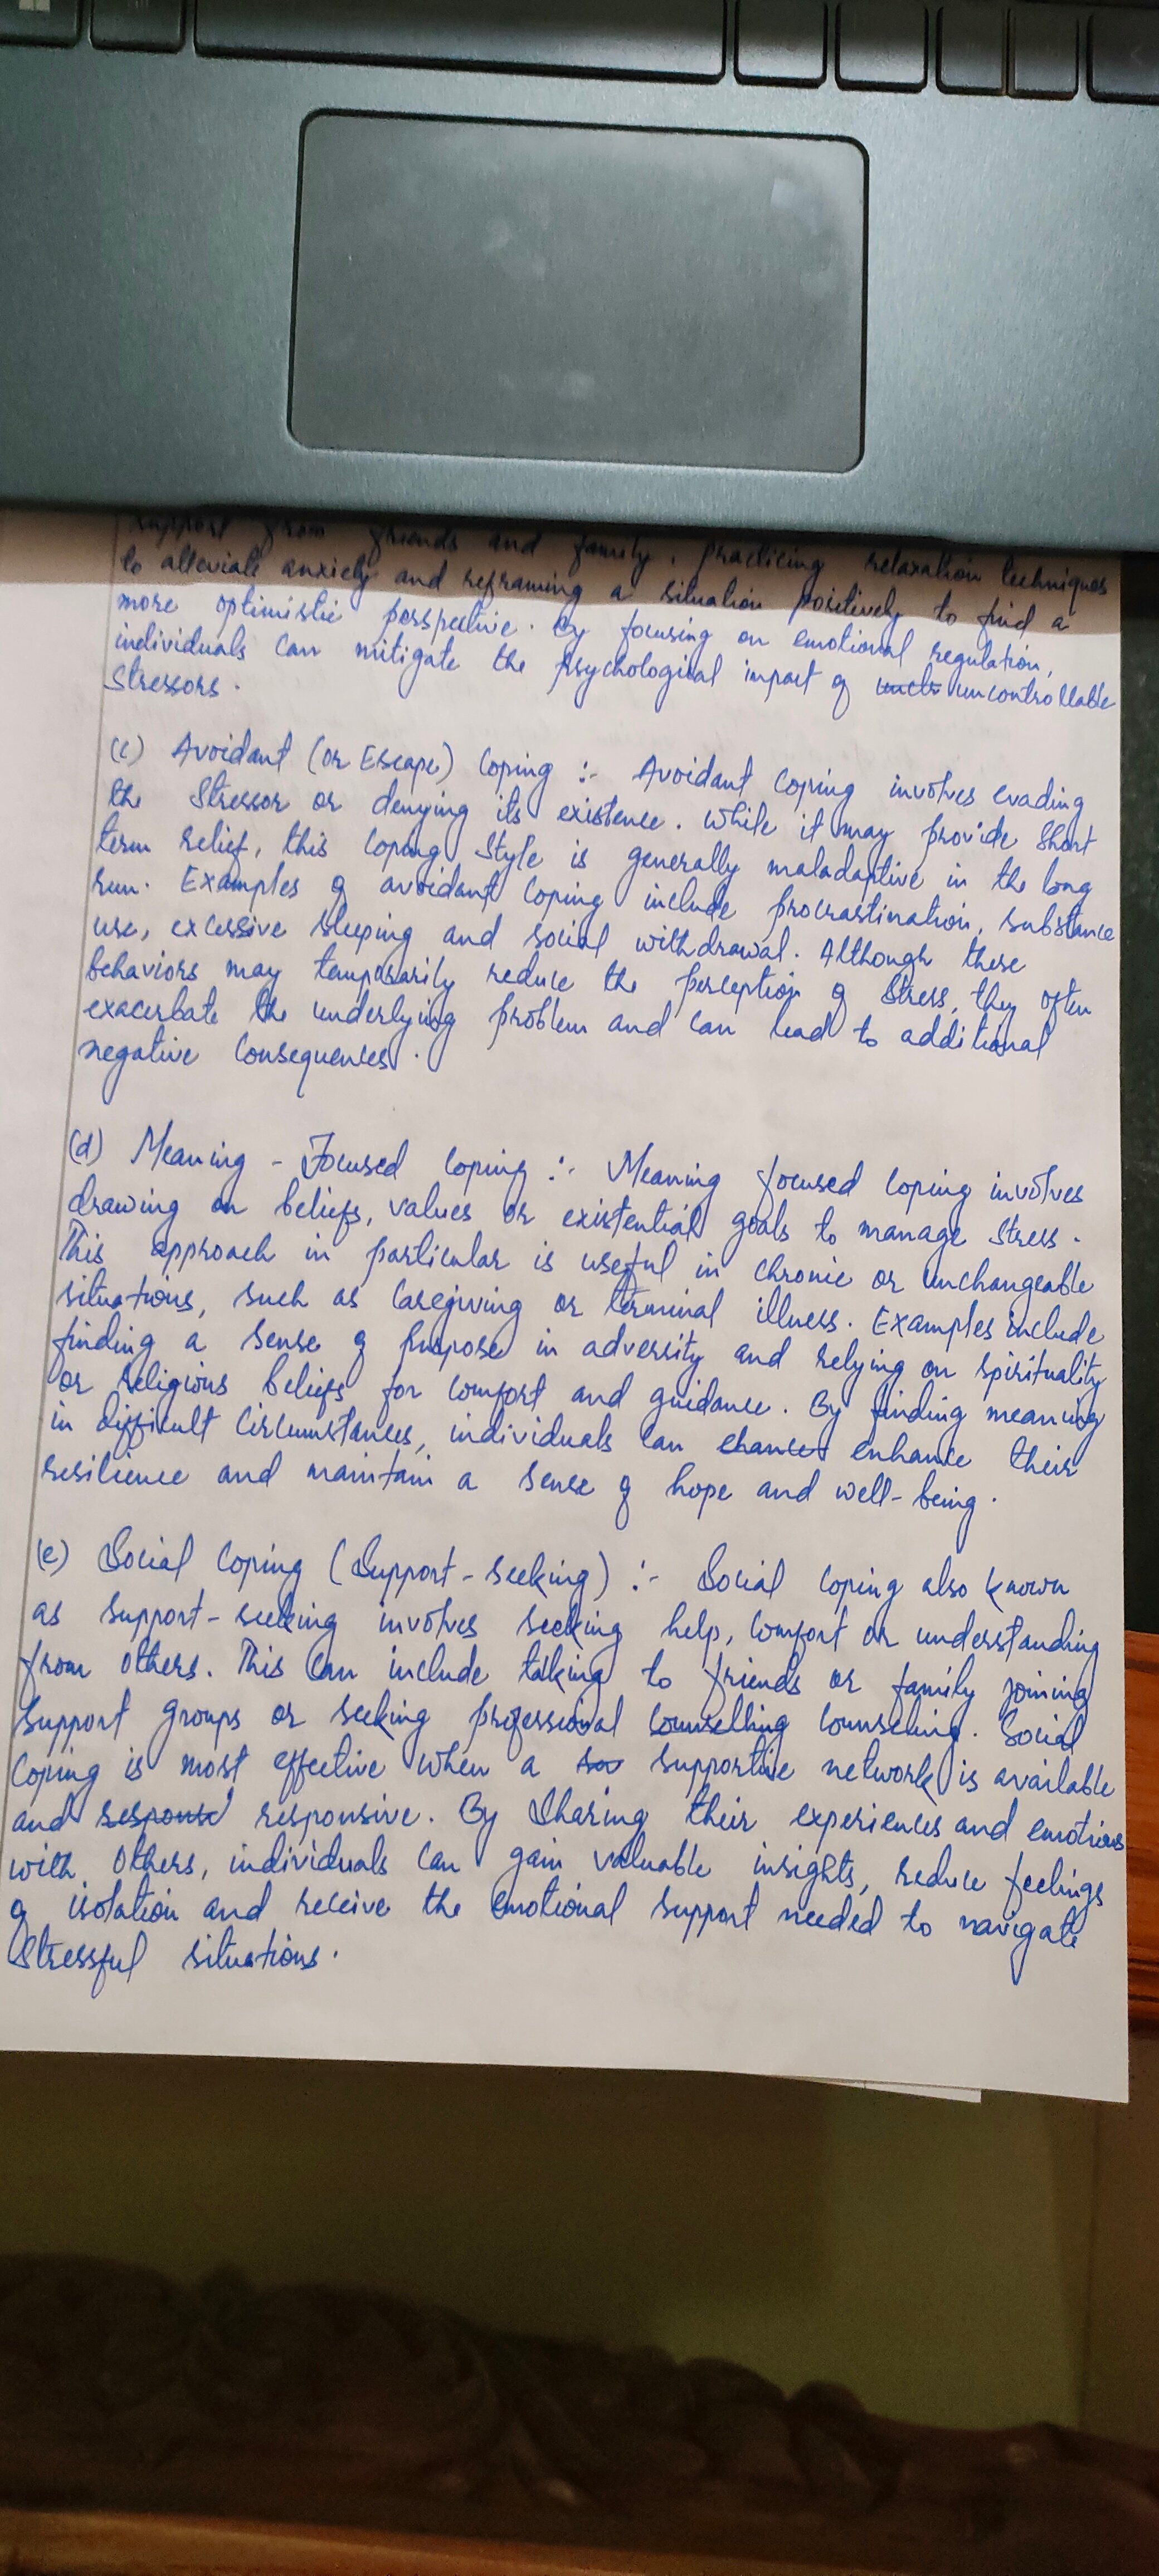 support from friends and family, practicing relaxation techniques
to alleviate anxiety and reframing a situation positively to find a
more optimistic perspective. By focusing on emotional regulation,
individuals can mitigate the psychological impact of uncontrollable
Stressors.
(c) Avoidant (or Escape) Coping :- Avoidant coping involves evading
the Stressor or denying its existence. While it may provide Short
term relief, this Coping Style is generally maladaptive in the long
run. Examples of avoidant coping include procrastination, substance
use, excessive sleeping and social withdrawal. Although these
behaviors may temporarily reduce the perception of Stress, they often
exacerbate the underlying problem and can lead to additional
negative Consequences.
(d) Meaning - Focused Coping :- Meaning focused coping involves
drawing on beliefs, values or existential goals to manage Stress.
This approach in particular is useful in chronic or unchangeable
situations, such as Caregiving or terminal illness. Examples include
finding a sense of purpose in adversity and relying on spirituality
or religious beliefs for comfort and guidance. By finding meaning
in difficult Circumstances, individuals can enhance their
resilience and maintain a sense of hope and well-being.
(e) Social Coping (Support-seeking) :- Social coping also known
as support-seeking involves seeking help, comfort or understanding
from others. This can include talking to friends or family joining
support groups or seeking professional counselling counseling. Social
Coping is most effective when a supportive network is available
and responsive. By Sharing their experiences and emotions
with others, individuals can gain valuable insights, reduce feelings
of isolation and receive the emotional support needed to navigate
Stressful situations.